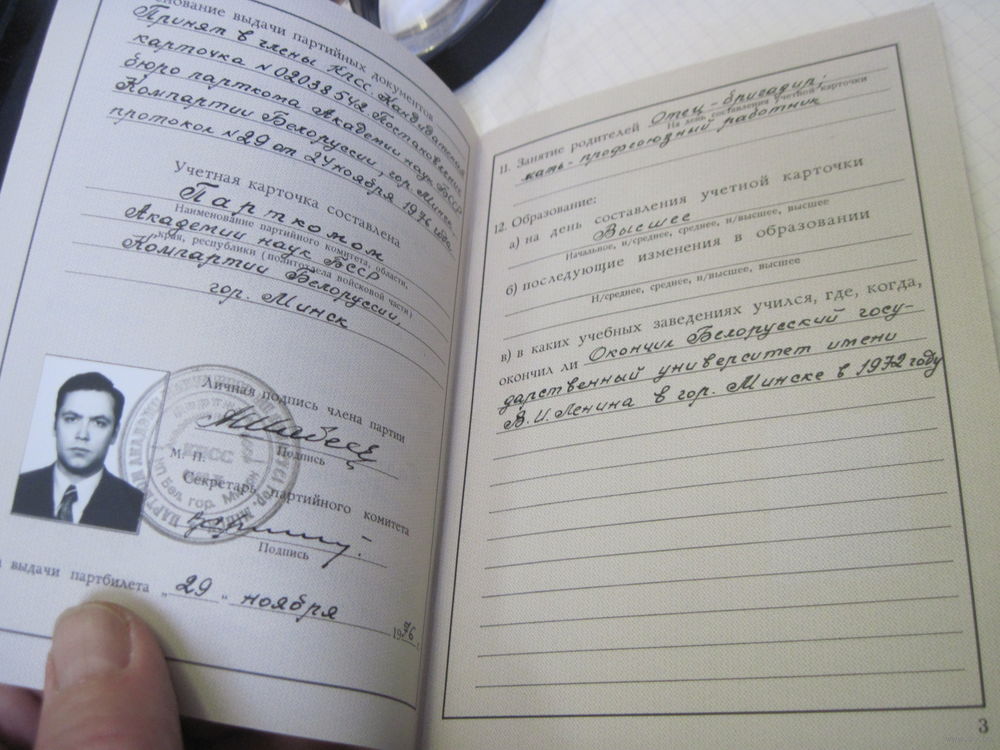 нование выдачи партийных документов
Принят в члены КПСС Кандидатская
карточка №02038542. Постановление
бюро парткома Академии наук БССР
Компартии Белоруссии, гор. Минск
протокол №29 от 24 ноября 1976 года.
Учетная карточка составлена
Парткомом
Наименование партийного комитета, области,
Академии наук БССР
края, республики (политотдела войсковой части)
Компартии Белоруссии,
гор. Минск
Личная подпись члена партии
Подпись
М. П.
Секретарь партийного комитета
Подпись
выдачи партбилета „29“ ноября 1976
11. Занятие родителей Отец - бригадир;
На день составления учетной карточки
мать - профсоюзный работник
12. Образование:
а) на день составления учетной карточки
Высшее
Начальное, н/среднее, среднее, н/высшее, высшее
б) последующие изменения в образовании
Н/среднее, среднее, н/высшее, высшее
в) в каких учебных заведениях учился, где, когда,
окончил ли Окончил Белорусский госу-
дарственный университет имени
В.И. Ленина в гор. Минске в 1972 году
3